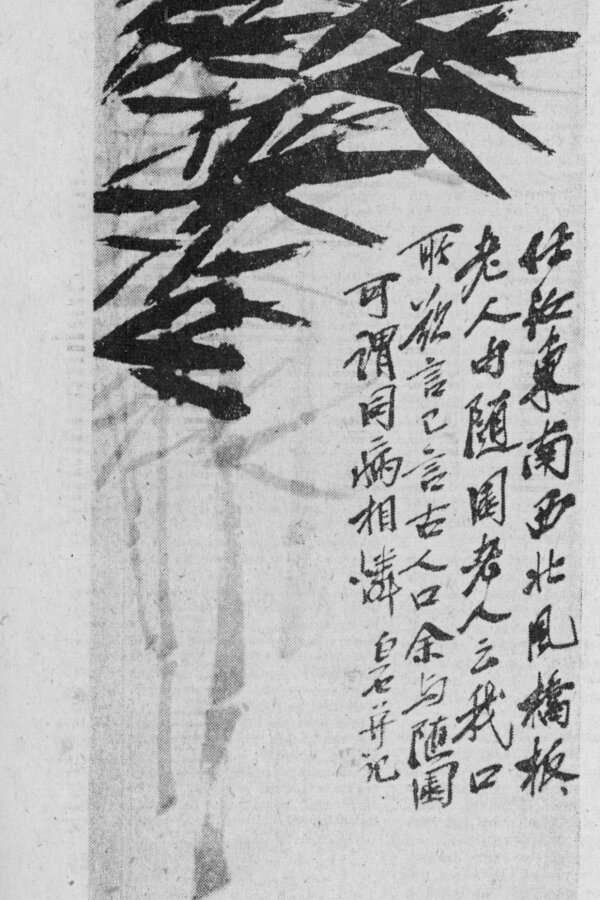 任汝東南西北風橋板
老人句隨園老人云我口
所欲言已言古人口余与隨園
可謂同病相憐 白石并記